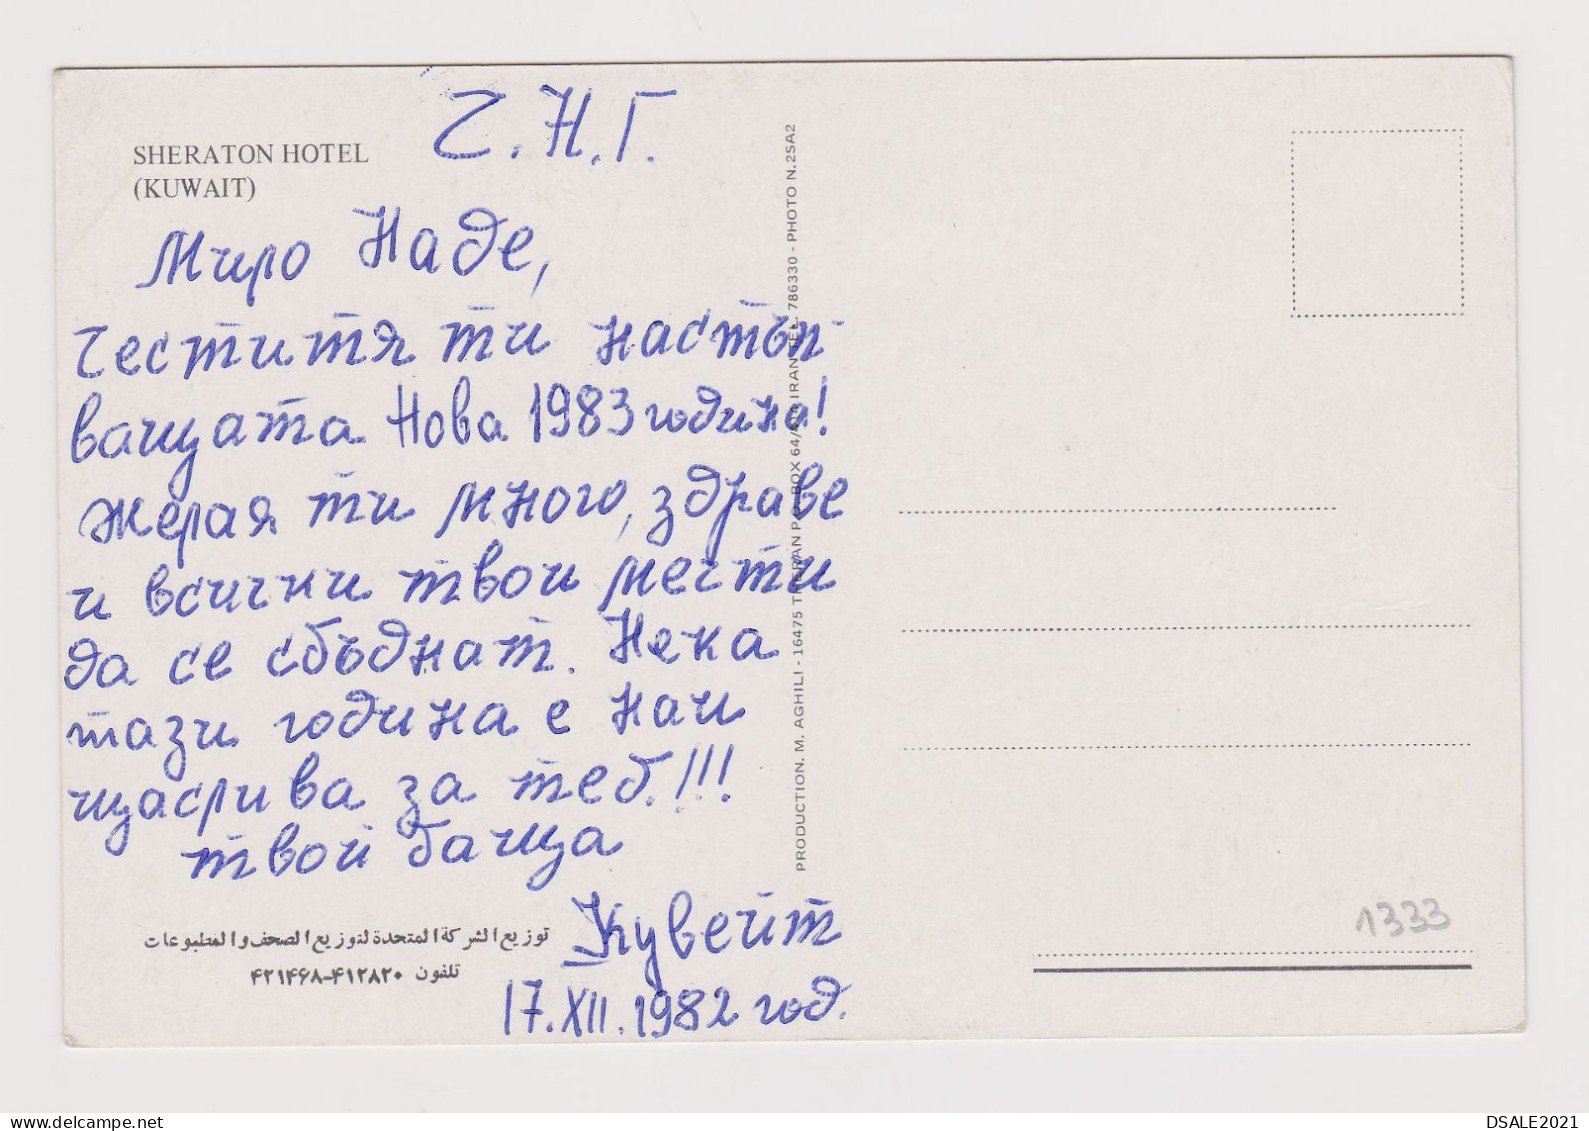 Ч.Н.Г.
SHERATON HOTEL
(KUWAIT)
Миро Наде,
Честитя ти настъп-
ващата Нова 1983 година!
Желая ти много, здраве
и всички твои мечти
да се сбъднат. Нека
тази година е наи
щаслива за теб!!!
твой баща
Кувейт
17.XII.1982 год.
توزيع الشركة المتحدة لتوزيع الصحف والمطبوعات
تلفون ۴۱۲۸۲۰-۴۲۱۴۶۸
PRODUCTION. M. AGHILI - 16475 TEHRAN P.O. BOX 64/ IRAN TEL. 786330 - PHOTO N.25A2
1333
DSALE2021